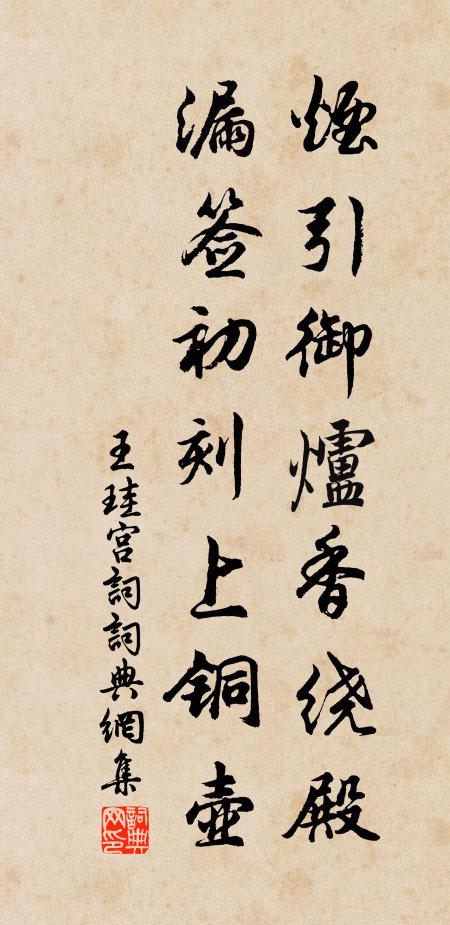 煙引御爐香绕殿
漏签初刻上铜壺
王珪宫詞詞典網集
詞典网印